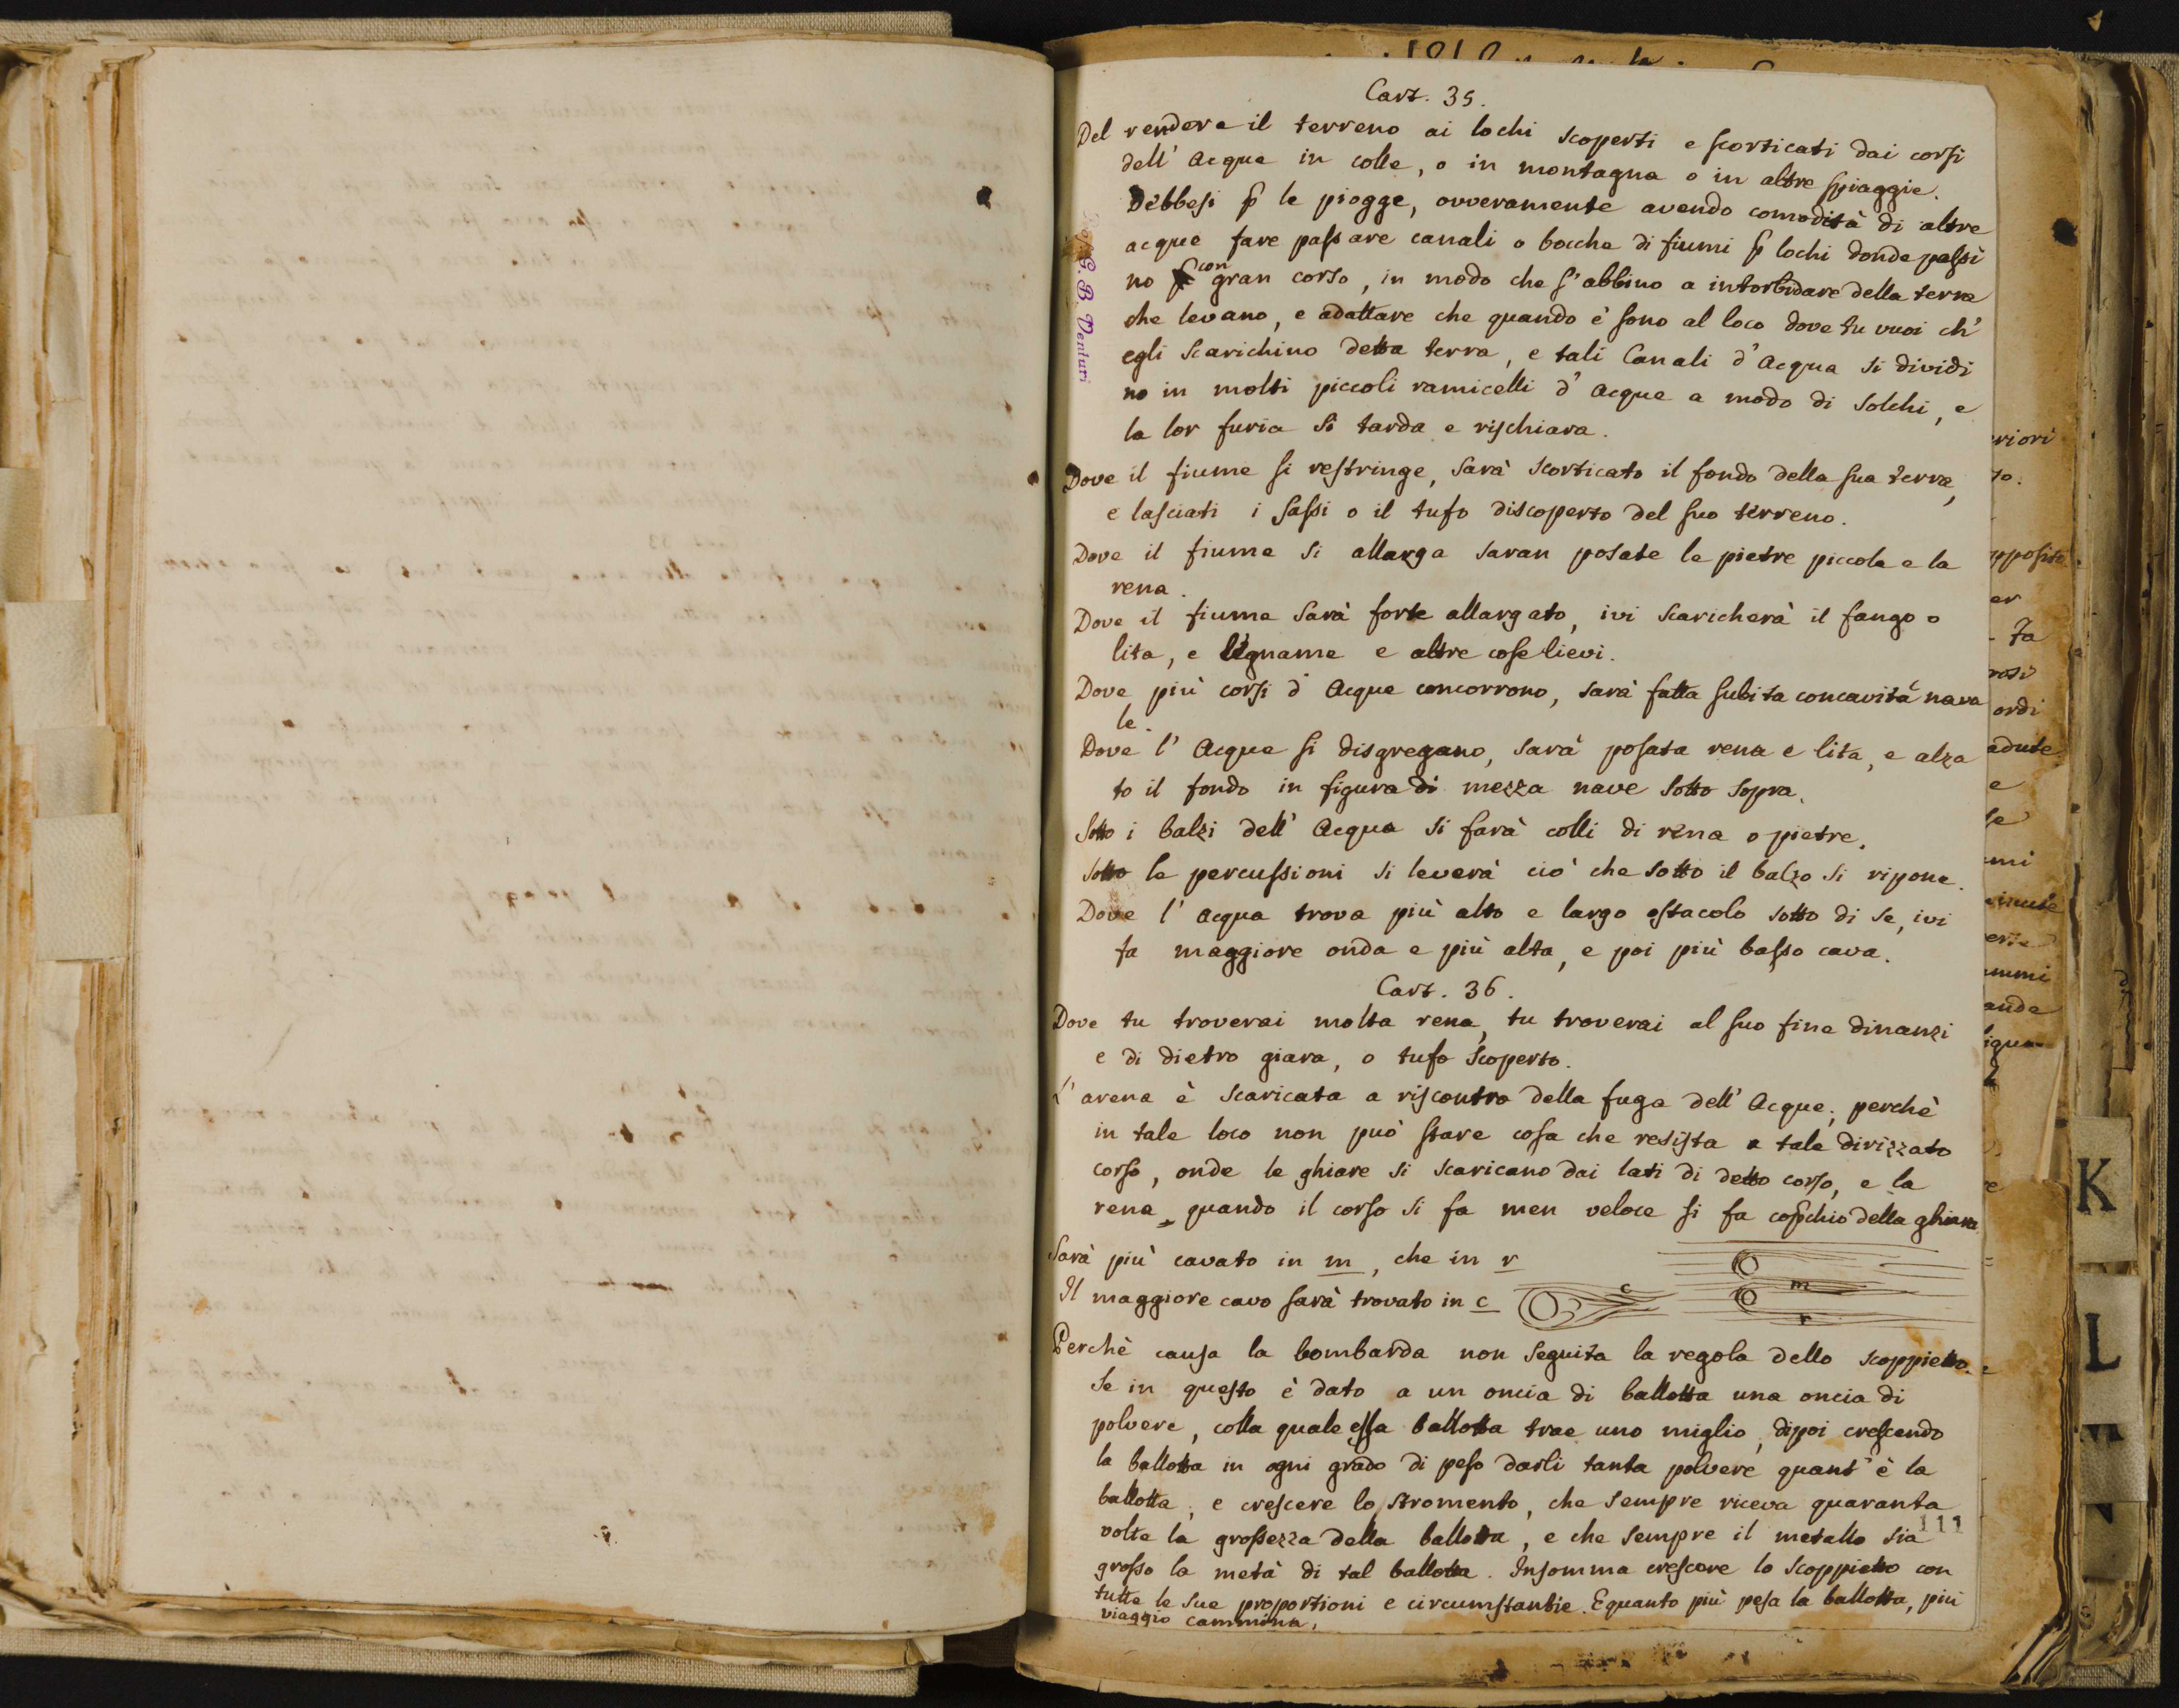 Cart. 35.
Del rendere il terreno ai lochi scoperti e scorticati dai corsi
dell' Acque in colle, o in montagna o in altre spiaggie.
Debbesi ꝑ le piogge, ovveramente avendo comodità di altre
acque fare passare canali o bocche di fiumi ꝑ lochi donde passi
no con gran corso, in modo che s'abbino a intorbidare della terra
che levano, e adattare che quando è sono al loco dove tu vuoi ch'
egli scarichino detta terra, e tali Canali d'Acqua si dividi
no in molti piccoli ramicelli d'Acque a modo di solchi, e
la lor furia si tarda e rischiara.
Dove il fiume si restringe, sarà scorticato il fondo della sua terra,
e lasciati i sassi o il tufo discoperto del suo terreno.
Dove il fiume si allarga saran posate le pietre piccole e la
rena.
Dove il fiume sarà forte allargato, ivi scaricherà il fango o
lita, e legname e altre cose lievi.
Dove più corsi d'Acque concorrono, sarà fatta subita concavità nava
le.
Dove l'Acque si disgregano, sarà posata rena e lita, e alza
to il fondo in figura di mezza nave sotto sopra.
Sotto i balzi dell'Acqua si farà colli di rena o pietre.
Sotto le percussioni si leverà ciò che sotto il balzo si ripone.
Dove l'acqua trova più alto e largo ostacolo sotto di se, ivi
fa maggiore onda e più alta, e poi più basso cava.
Cart. 36.
Dove tu troverai molta rena, tu troverai al suo fine dinanzi
e di dietro giara, o tufo scoperto.
L'arena è scaricata a riscontro della fuga dell'Acque; perchè
in tale loco non può stare cosa che resista a tale dirizzato
corso, onde le ghiare si scaricano dai lati di detto corso, e la
rena, quando il corso si fa men veloce si fa coꝑchio della ghiara.
Sarà più cavato in m, che in r
Il maggiore cavo sarà trovato in c
c
m
r
Perchè causa la bombarda non seguita la regola dello scoppietto.
Se in questo è dato a un oncia di ballotta una oncia di
polvere, colla quale essa ballotta trae uno miglio, dipoi crescendo
la ballotta in ogni grado di peso darli tanta polvere quant'è la
ballotta, e crescere lo stromento, che sempre riceva quaranta
volte la grossezza della ballotta, e che sempre il metallo sia
grosso la metà di tal ballotta. Insomma crescere lo scoppietto con
tutte le sue proportioni e circumstantie. E quanto più pesa la ballotta, più
viaggio cammina.
111
G. B. Venturi
K
L